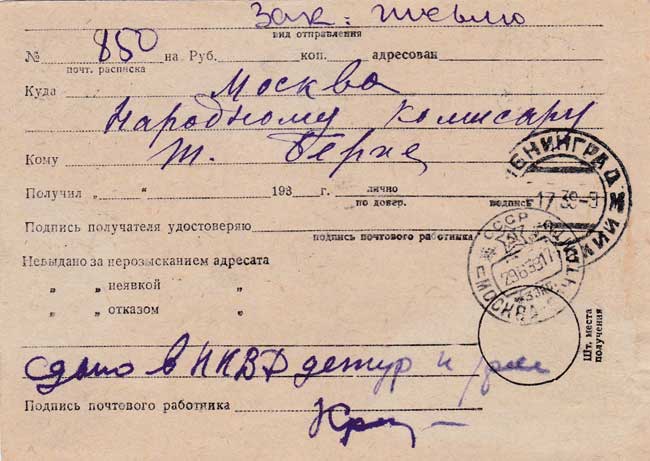 Зак. письмо
вид отправления
№ 850 на Руб. коп. адресован
почт. расписка
Куда Москва
Народному Комисару
Кому т. Берие
Получил „ “ 193 г. лично
по довер. подпись
ЕНИНГРАД
17 39-9
Подпись получателя удостоверяю
подпись почтового работника
СССР
2963917
МОСКВА
Невыдано за нерозысканием адресата
„ „ неявкой „
„ „ отказом „
Шт. места
получения
сдано в НКВД дежур
Подпись почтового работника